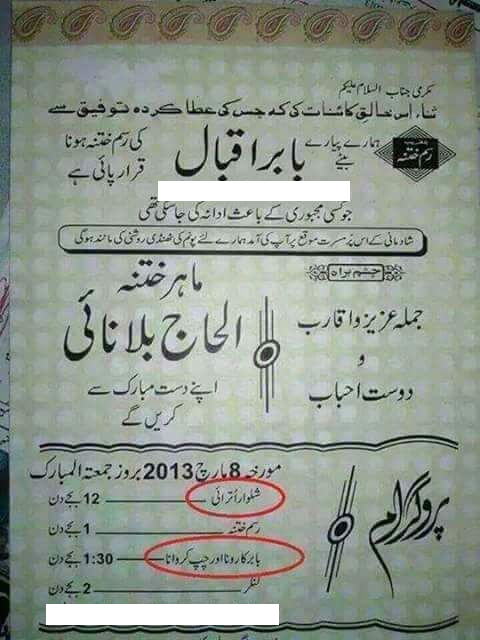 مکرمی جناب السلام علیکم
ثناء اس خالق کائنات کی کہ جس کی عطا کردہ توفیق سے
بتقریب
رسم ختنہ
ہمارے پیارے بیٹے
بابر اقبال
کی رسم ختنہ ہونا قرار پائی ہے
جو کسی مجبوری کے باعث ادا نہ کی جاسکی تھی
شادمانی کے اس پُر مسرت موقع پر آپ کی آمد ہمارے لئے پونم کی ٹھنڈی روشنی کی مانند ہوگی
چشم براہ
جملہ عزیز و اقارب
و
دوست احباب
ماہر ختنہ
الحاج بلا نائی
اپنے دست مبارک سے
کریں گے
پروگرام
مورخہ 8 مارچ 2013 بروز جمعتہ المبارک
شلوار اُترائی ـــــــ 12 بجے دن
رسم ختنہ ـــــــ 1 بجے دن
بابر کا رونا اور چپ کروانا ـــــــ 1:30 بجے دن
لنگر ـــــــ 2 بجے دن